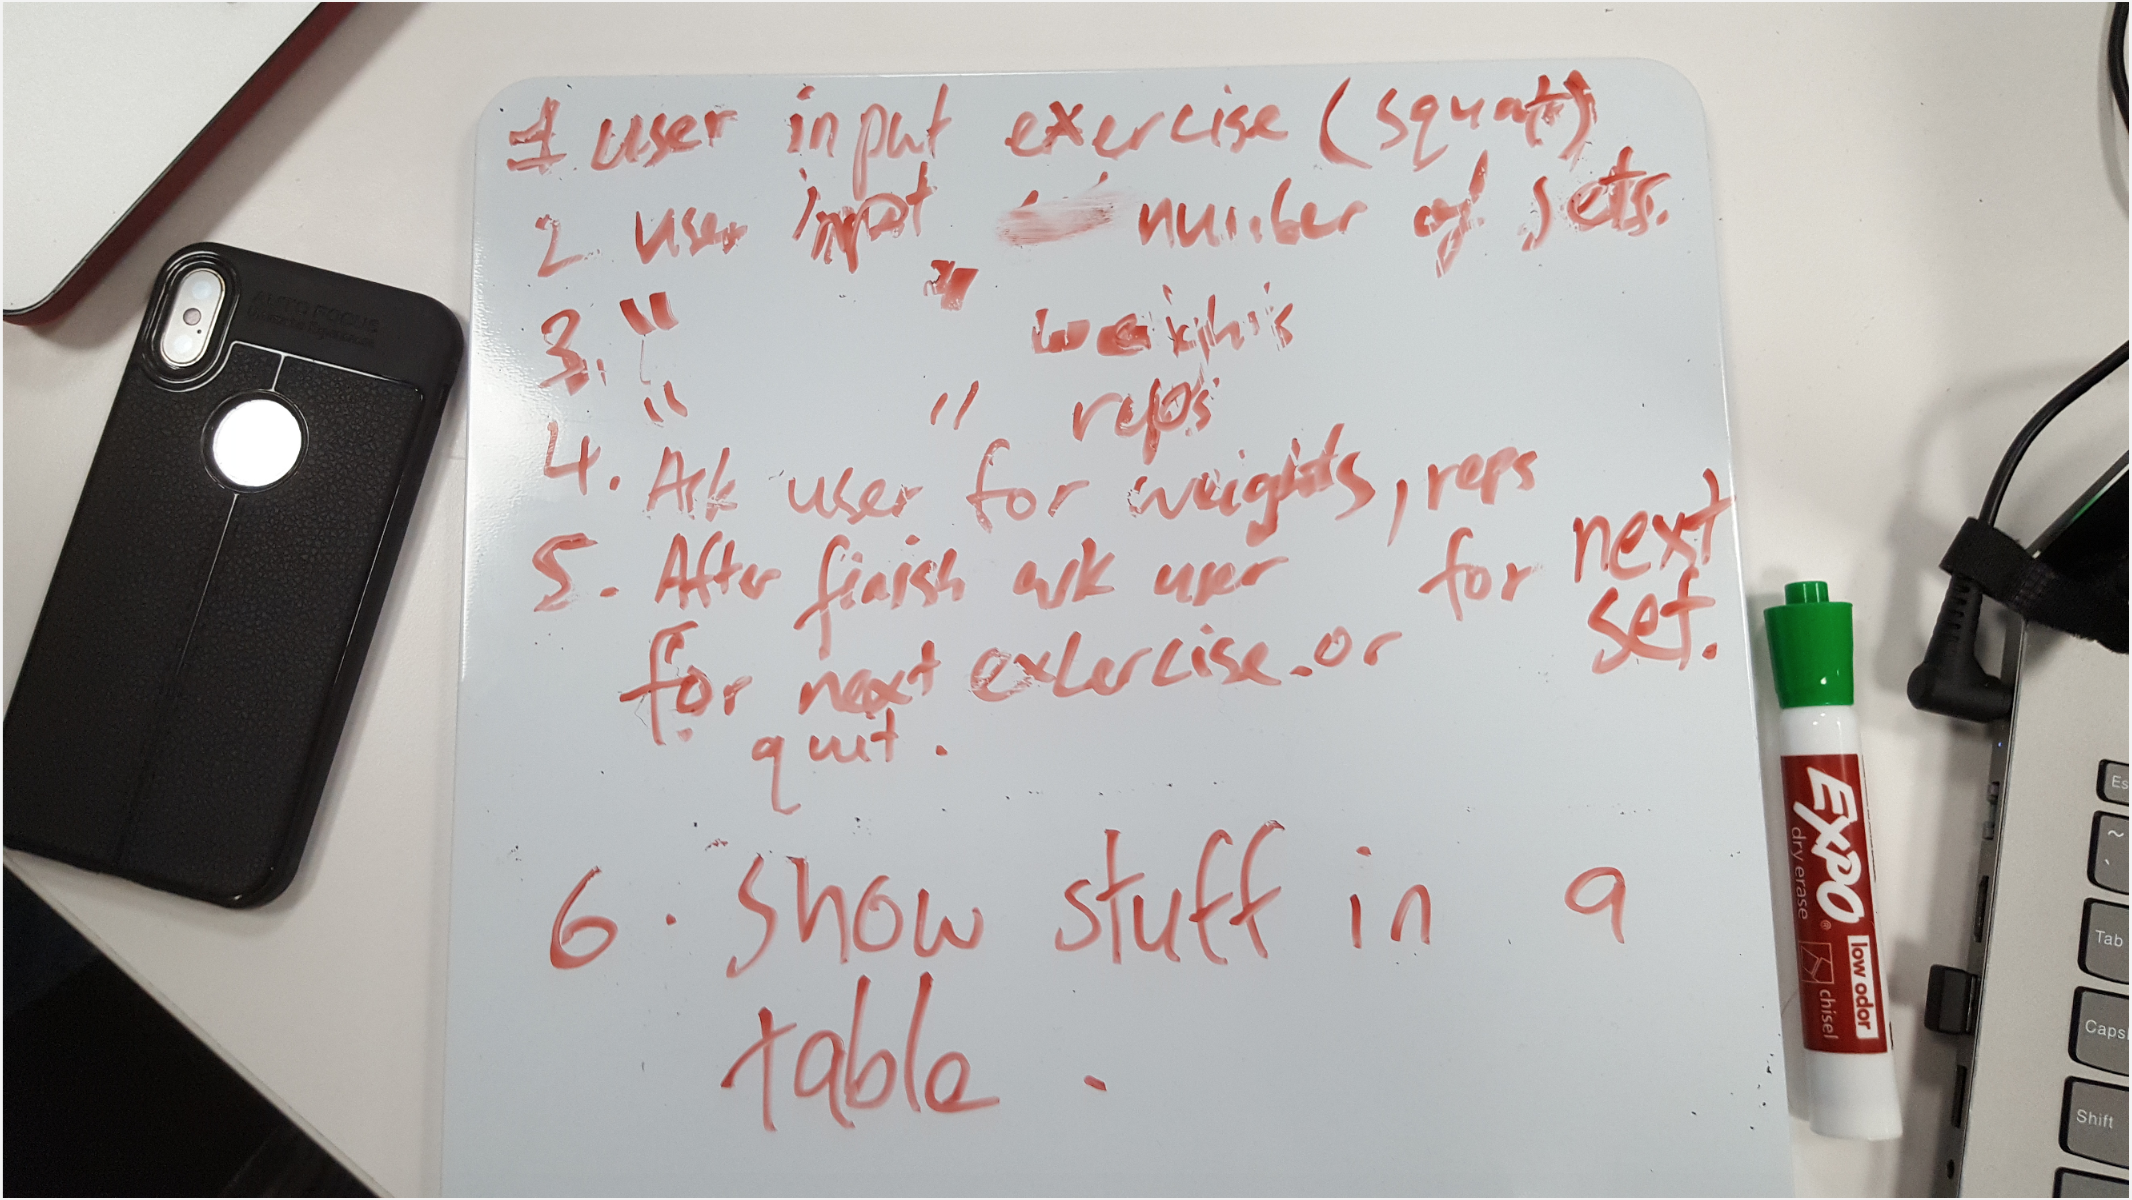 1. user input exercise (squat)
2 user input number of sets.
3. " " weights
" " reps
4. Ask user for weights, reps for next set.
5. After finish ask user
for next exercise. or
quit.
6. Show stuff in a
table.
AUTO FOCUS
EXPO
dry erase
low odor
chisel
Es
~
Tab
Caps
Shift